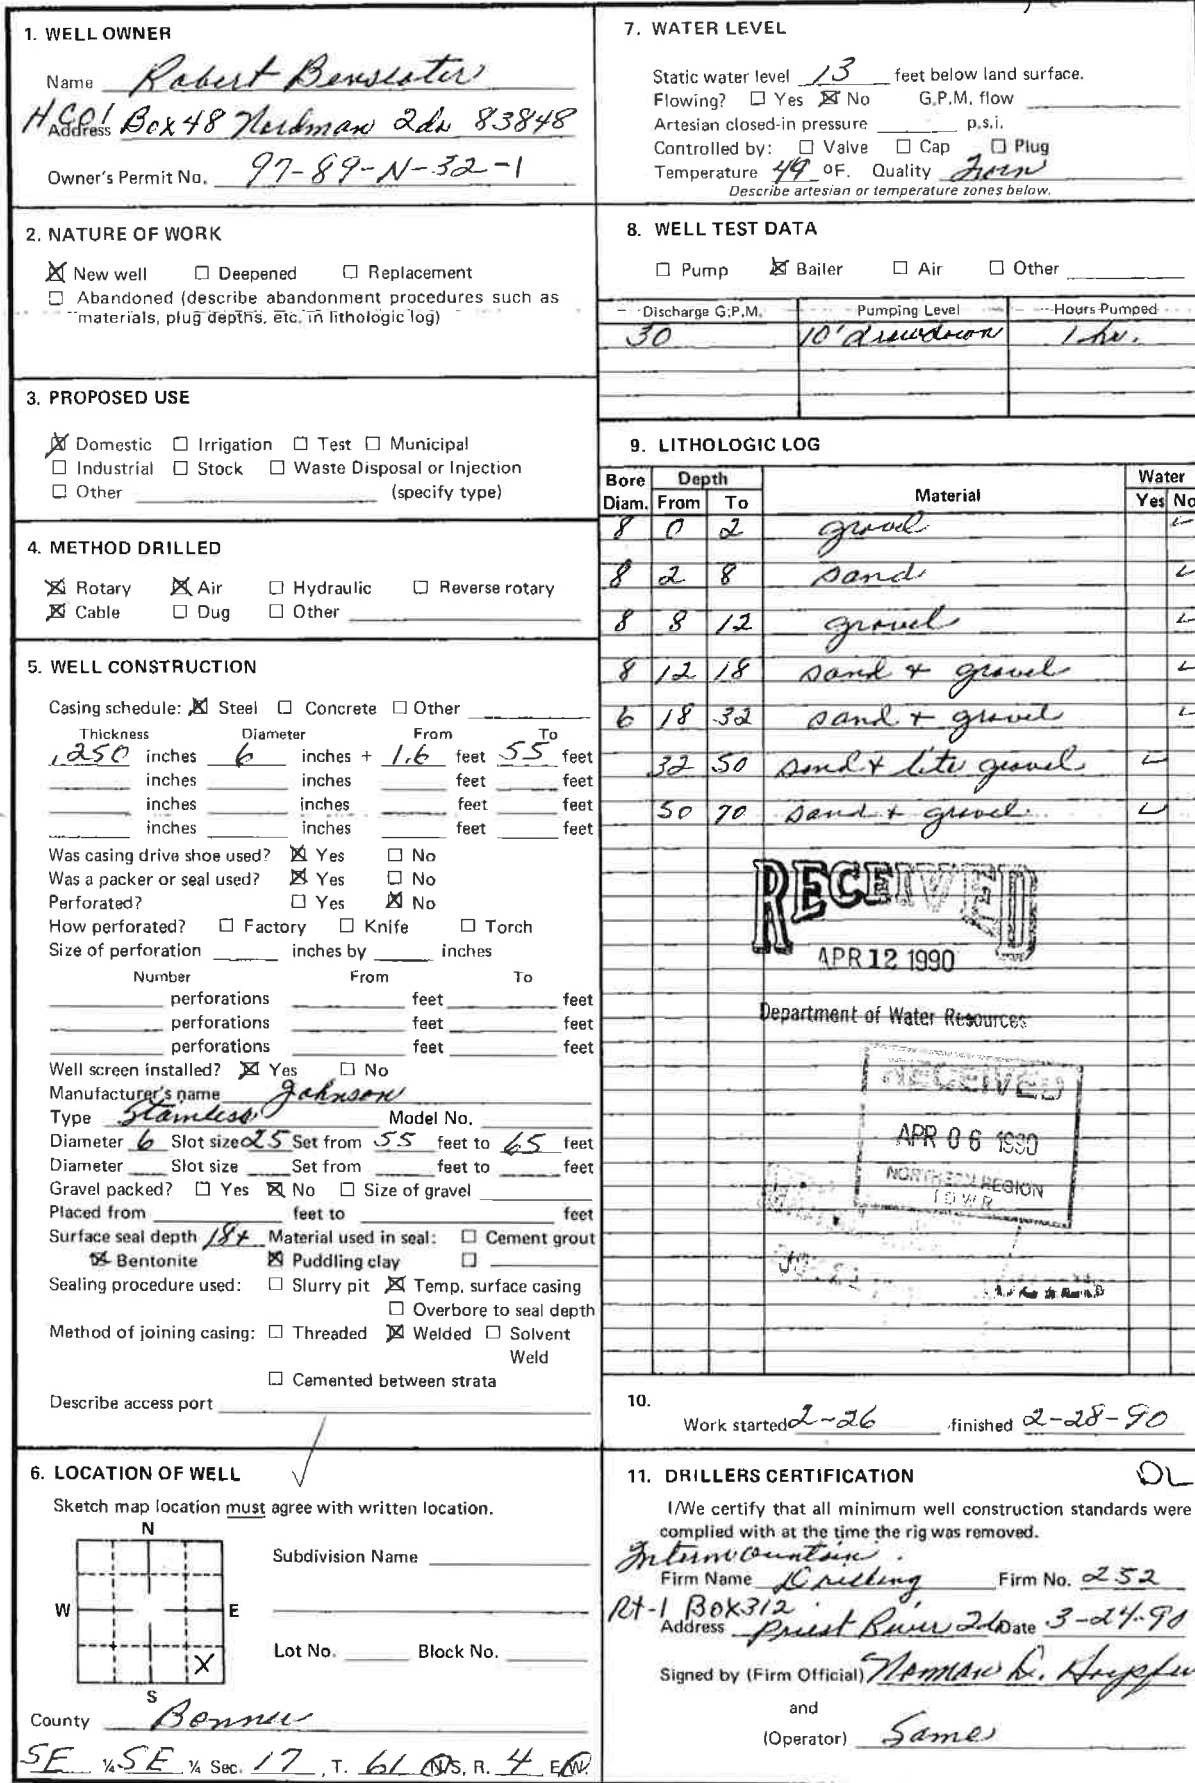 1. WELL OWNER
Name Robert Benscoter
H.C.O1
Address Box 48 Nordman Ida 83848
Owner's Permit No. 97-89-N-32-1
2. NATURE OF WORK
☒ New well ☐ Deepened ☐ Replacement
☐ Abandoned (describe abandonment procedures such as
materials, plug depths, etc. in lithologic log)
3. PROPOSED USE
☒ Domestic ☐ Irrigation ☐ Test ☐ Municipal
☐ Industrial ☐ Stock ☐ Waste Disposal or Injection
☐ Other (specify type)
4. METHOD DRILLED
☒ Rotary ☒ Air ☐ Hydraulic ☐ Reverse rotary
☒ Cable ☐ Dug ☐ Other
5. WELL CONSTRUCTION
Casing schedule: ☒ Steel ☐ Concrete ☐ Other
Thickness Diameter From To
.250 inches 6 inches + 1.6 feet 55 feet
inches inches feet feet
inches inches feet feet
inches inches feet feet
Was casing drive shoe used? ☒ Yes ☐ No
Was a packer or seal used? ☒ Yes ☐ No
Perforated? ☐ Yes ☒ No
How perforated? ☐ Factory ☐ Knife ☐ Torch
Size of perforation inches by inches
Number From To
perforations feet feet
perforations feet feet
perforations feet feet
Well screen installed? ☒ Yes ☐ No
Manufacturer's name Johnson
Type Stainless Model No.
Diameter 6 Slot size 25 Set from 55 feet to 65 feet
Diameter Slot size Set from feet to feet
Gravel packed? ☐ Yes ☒ No ☐ Size of gravel
Placed from feet to feet
Surface seal depth 18+ Material used in seal: ☐ Cement grout
☒ Bentonite ☒ Puddling clay ☐
Sealing procedure used: ☐ Slurry pit ☒ Temp. surface casing
☐ Overbore to seal depth
Method of joining casing: ☐ Threaded ☒ Welded ☐ Solvent
Weld
☐ Cemented between strata
Describe access port
6. LOCATION OF WELL
Sketch map location must agree with written location.
N
Subdivision Name
W E
Lot No. Block No.
X
S
County Bonner
SE ¼ SE ¼ Sec. 17, T. 61 N/S, R. 4 E/W.
7. WATER LEVEL
Static water level 13 feet below land surface.
Flowing? ☐ Yes ☒ No G.P.M. flow
Artesian closed-in pressure p.s.i.
Controlled by: ☐ Valve ☐ Cap ☐ Plug
Temperature 49 ºF. Quality Iron
Describe artesian or temperature zones below.
8. WELL TEST DATA
☐ Pump ☒ Bailer ☐ Air ☐ Other
Discharge G.P.M. Pumping Level Hours Pumped
30 10' drawdown 1 hr.
9. LITHOLOGIC LOG
Bore Depth Material Water
Diam. From To Yes No
8 0 2 gravel ✓
8 2 8 sand ✓
8 8 12 gravel ✓
8 12 18 sand + gravel ✓
6 18 32 sand + gravel ✓
32 50 sand + lite gravel ✓
50 70 sand + gravel ✓
RECEIVED
APR 12 1990
Department of Water Resources
RECEIVED
APR 06 1990
NORTHERN REGION
IDWR
10.
Work started 2-26 finished 2-28-90
11. DRILLERS CERTIFICATION
DL
I/We certify that all minimum well construction standards were
complied with at the time the rig was removed.
Intermountain
Firm Name Drilling Firm No. 252
Rt-1 Box 312
Address Priest River Ida Date 3-24-90
Signed by (Firm Official) Norman
and
(Operator) Same